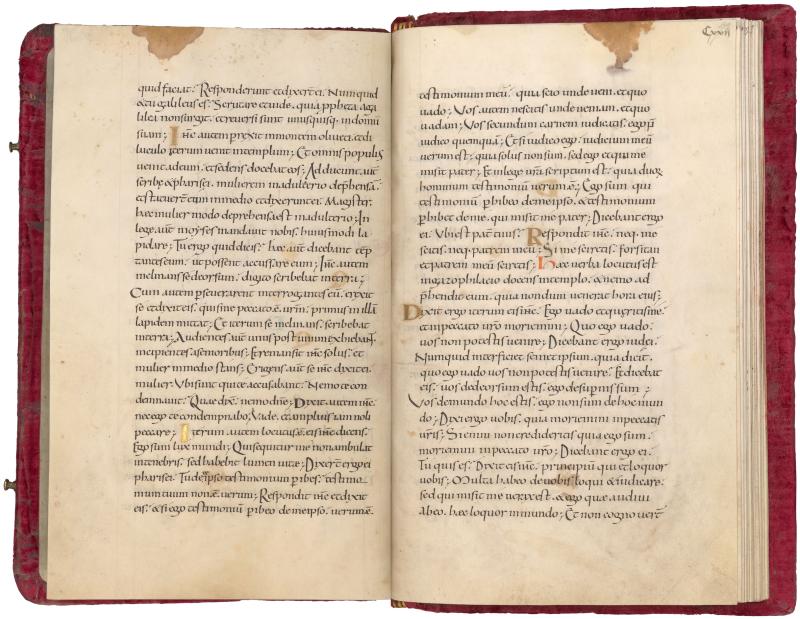 quid faciat. Responderunt et dixer̄ ei. Numquid
& tu galileus es. Scrutare et uide. quia ppheta a ga
lilea non surgit. et reuersi sunt unusquisq; in domū
suam; Ihc̄ autem prexit in montem oliueti. et di
luculo iterum uenit in templum; Et omnis populus
uenit ad eum. et sedens docebat eos; Adducunt aut̄
scribę & pharisei. mulierem in adulterio dep̄hensā.
et statuer̄ eam in medio et dixerunt ei. Magister.
hæc mulier modo deprehensa est in adulterio; In
lege aut̄ moyses mandauit nobis. huiusmodi la
pidare; Tu ergo quid dicis. hæc aut̄ dicebant tēp
tantes eum. ut possent accussare eum; Ihc̄ autem
inclinans se deorsum. digito scribebat in terra;
Cum autem p̄seuerarent interrogantes eū. erexit
se et dixit eis. qui sine peccato ē. ur̄m. primus in illā
lapidem mittat; Et iterum se inclinans. scribebat
in terra; Audientes aut̄ unus post unum exiebant.
incipientes a senioribus; Et remansit ihc̄ solus. et
mulier in medio stans; Erigens aut̄ se ihc̄ dixit ei.
mulier. Ubi sunt qui te accusabant. Nemo te con
demnauit. Quæ dix̄. nemo dn̄e; Dixit autem ihc̄
nec ego te condemnabo; Vade. et amplius iam noli
peccare; Iterum autem locutus ē. eis ihc̄ dicens.
Ego sum lux mundi; Qui sequitur me non ambulat
in tenebris. sed habebit lumen uitæ; Dixer̄t ergo ei
pharisei. Tu de ipso testimonium p̄ibes. testimo
nium tuum non ē. uerum; Respondit ihc̄ et dixit
eis. & si ego testimoniū p̄ibeo de meipso. uerum ē.
Cxxii
testimonium meū. quia scio unde ueni. et quo
uado; Vos autem nescitis unde ueniam. et quo
uadam; Vos secundum carnem iudicatis. ego n̄
iudico quemquā; Et si iudico ego. iudicium meū
uerum est. quia solus non sum. sed ego et qui me
misit pater; Et in lege ur̄a scriptum est. quia duoꝝ
hominum testimoniū uerum ē; Ego sum qui
testimoniū p̄hibeo de meipso. & testimonium
p̄hibet de me. qui misit me pater; Dicebant ergo
ei. Ubi est pat̄ tuus. Respondit ihc̄. neq. me
scitis. neq. patrem meū; Si me sciretis. forsitan
et patrem meū sciretis; Hæc uerba locutus est
in gazophilacio docens in templo. & nemo ad
p̄hendit eum. quia nondum uenerat hora eius;
Dixit ergo iterum eis ihc̄. Ego uado et queritis me.
et in peccato ur̄o moriemini; Quo ego uado.
uos non potestis uenire; Dicebant ergo iudei.
Numquid interficiet semetipsum. quia dicit.
quo ego uado uos non potestis uenire. Et dicebat
eis. uos de deorsum estis. ego de sup̄nis sum;
Vos de mundo hoc estis. ego non sum de hoc mun
do; Dixi ergo uobis. quia moriemini in peccatis
ur̄is; Si enim non credideritis quia ego sum.
moriemini in peccato ur̄o; Dicebant ergo ei.
Tu quis es. Dixit eis ihc̄. principiū qui et loquor
uobis; Multa habeo de uobis loqui & iudicare.
sed qui misit me uerax est. & ego quæ audiui
ab eo. hæc loquor in mundo; Et non cognouer̄